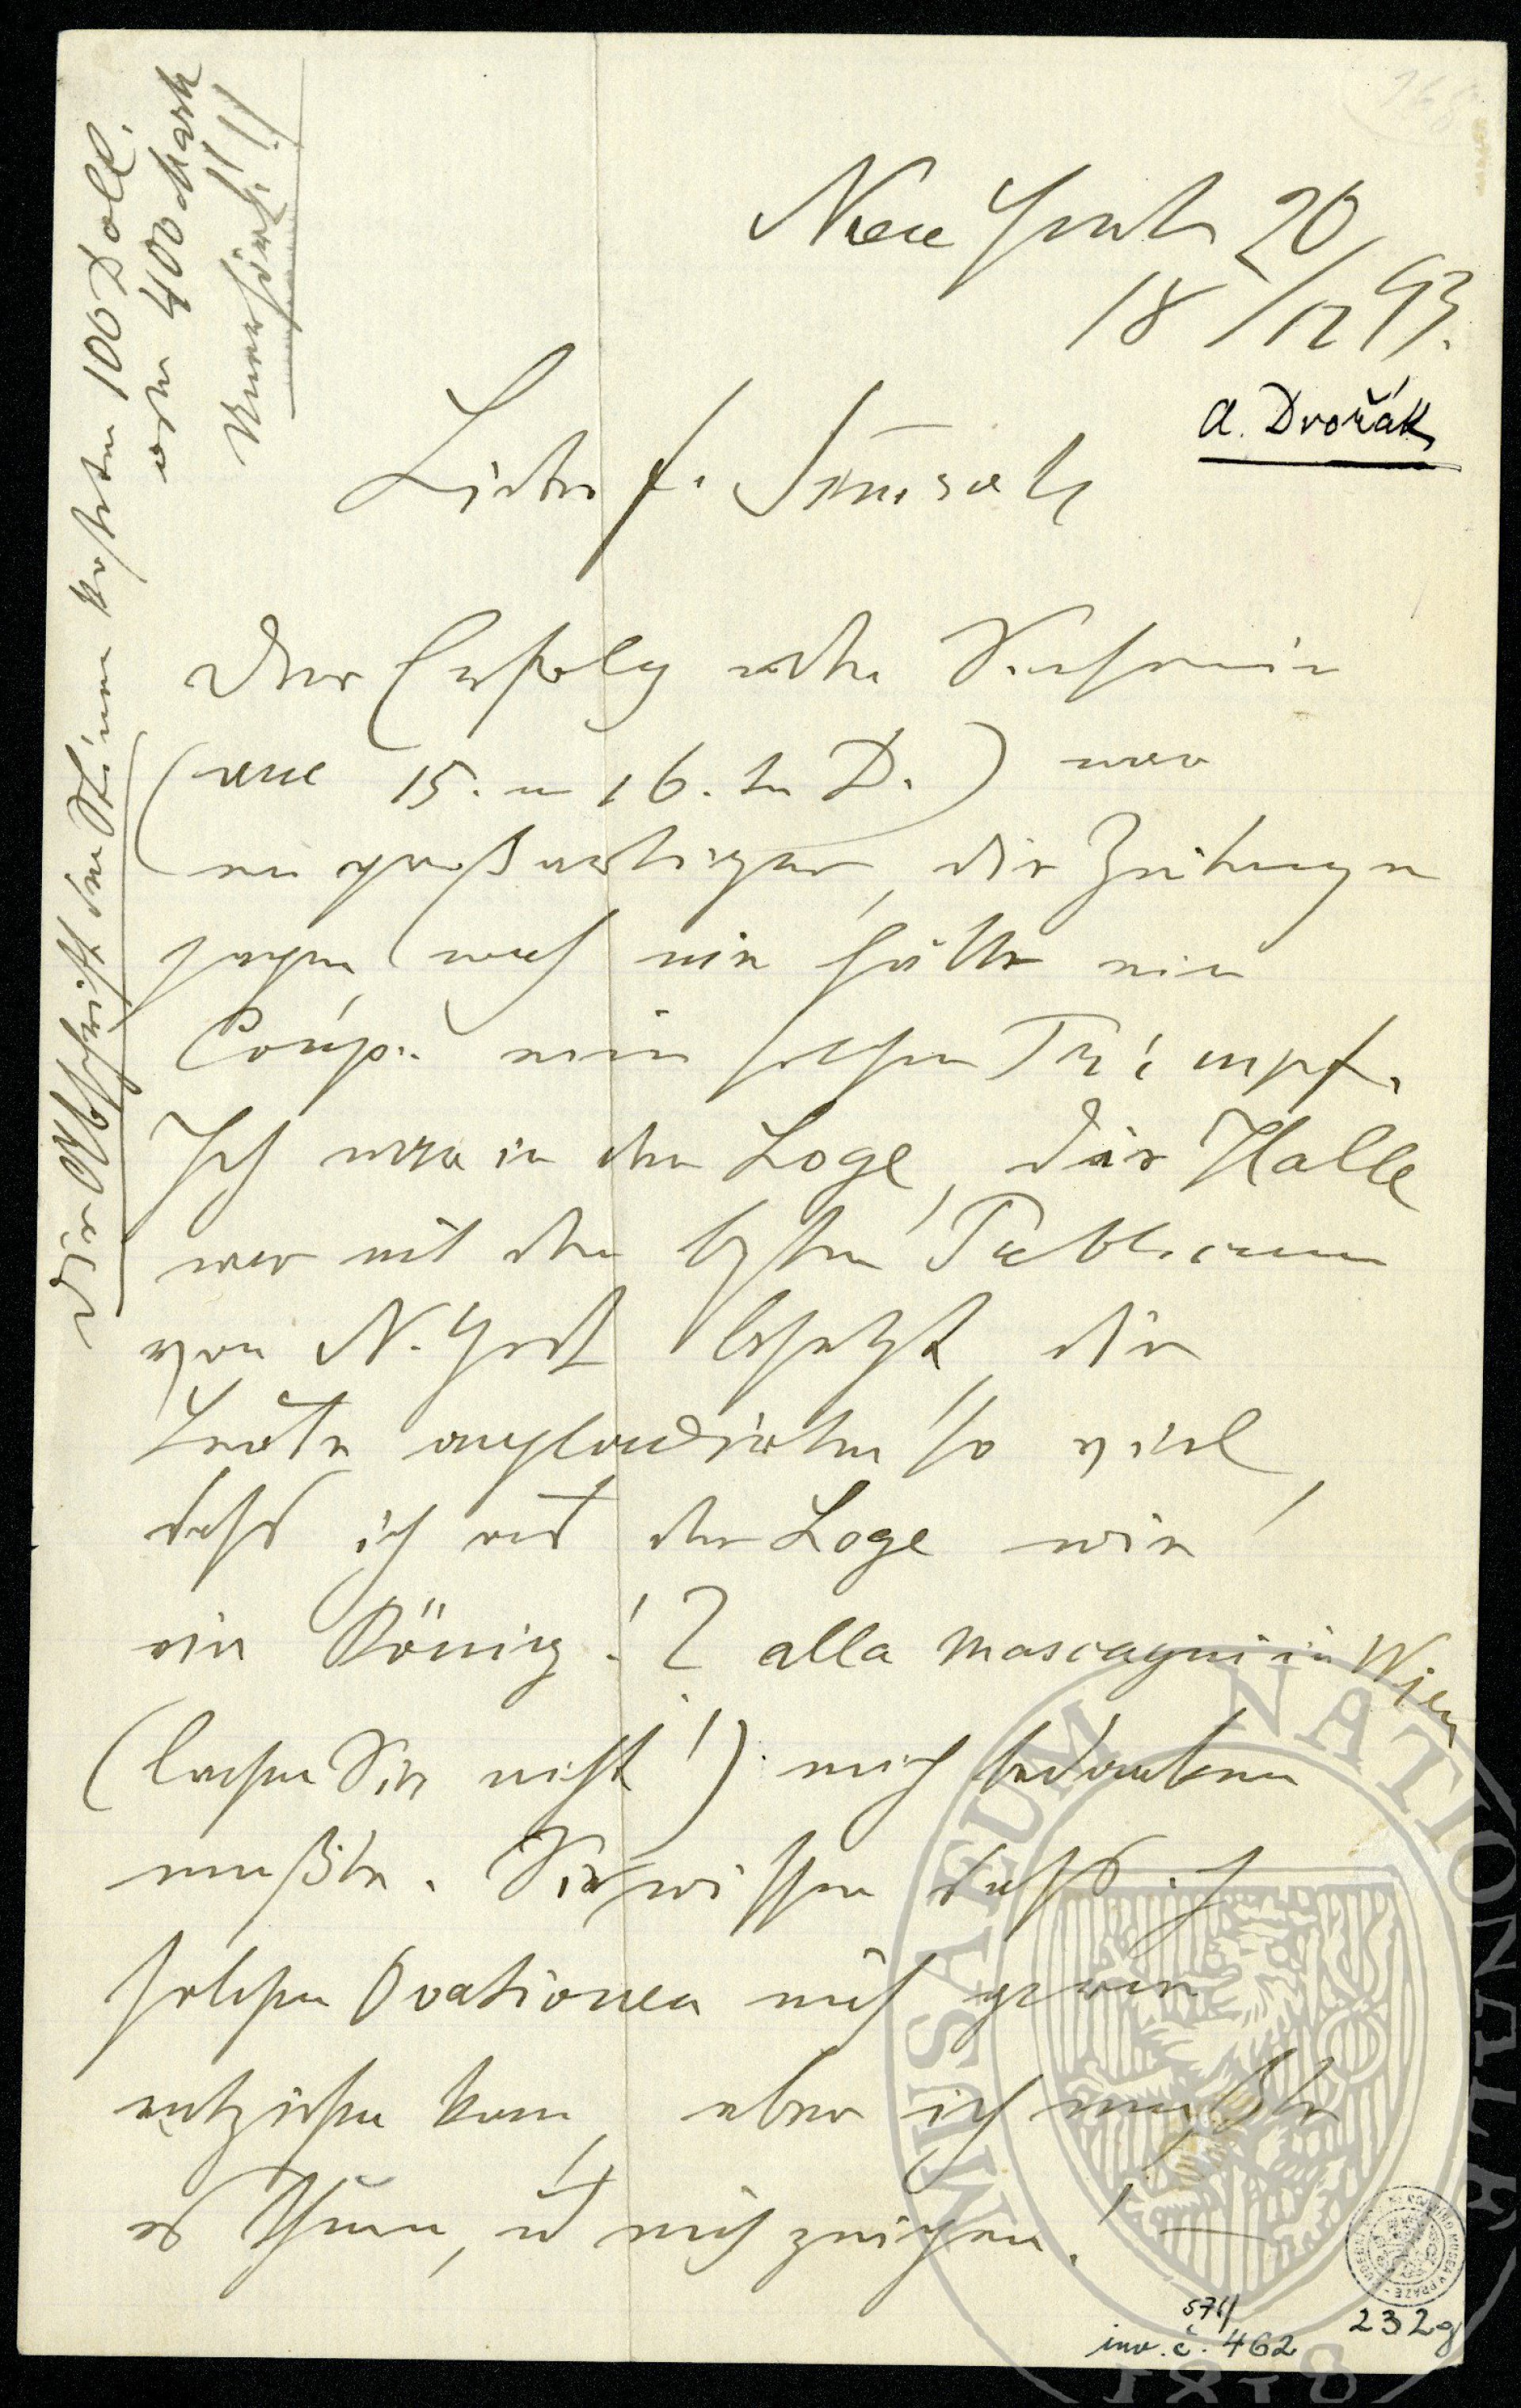 New York 20
18 /12 93.
A. Dvořák
Lieber H. Simrock
Der Erfolg der Sinfonie
(am 15. u 16. ten D.) war
ein großartiger, die Zeitungen
sagen, noch nie hätte ein
Componist einen solchen Triumpf.
Ich war in der Loge, die Halle
war mit dem besten Publicum
von N. York besetzt, die
Leute applaudirten so viel,
dass ich aus der Loge wie
ein König! ? alla Mascagni in Wien
(lachen Sie nicht!) mich bedanken
mußte. Sie wissen dass ich
solchen Ovationen mich gerne
entziehen kann, aber ich mußte
es thun, und mich zeigen! —
Die Abschrift der Stimmen kosten 100 Doll.
oder 400 Mark
Unerhört!!
MUSAEUM NATIONALE
1818
571/
inv. č. 462
232g